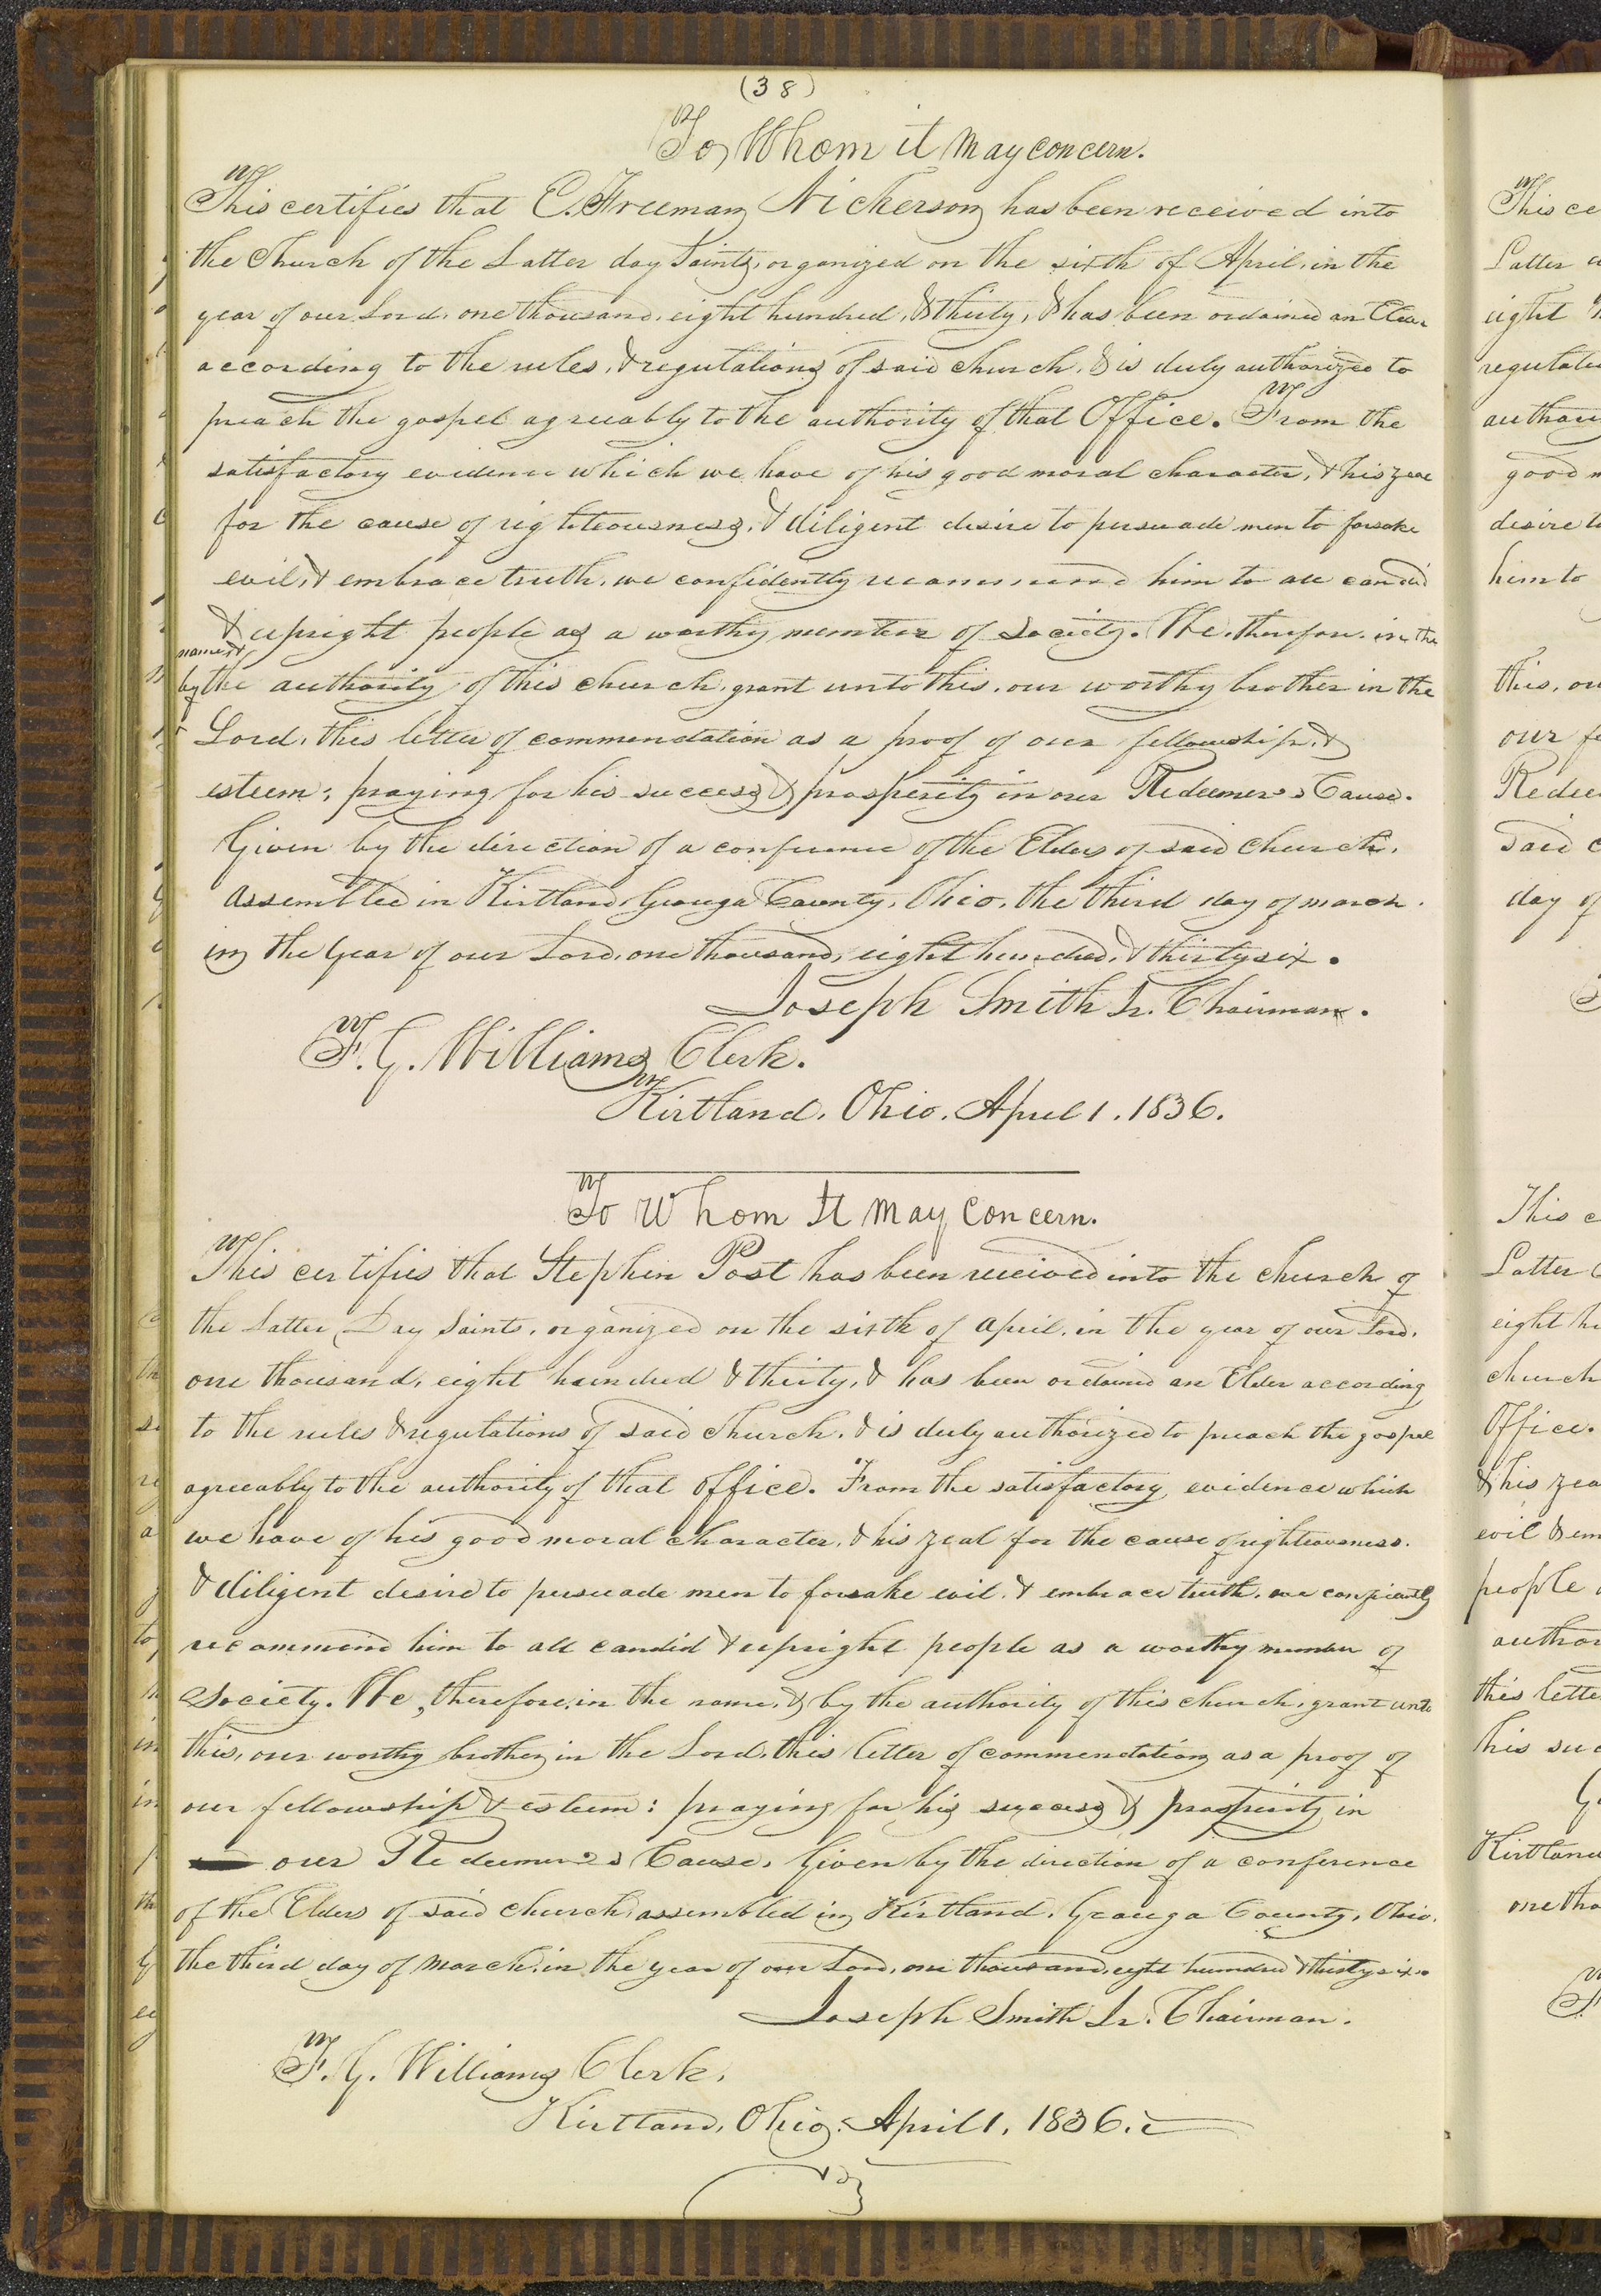 (38)
To Whom it May concern.
This certifies that E. Freeman Nickerson has been received into
the Church of the Latter day Saints, organized on the sixth of April, in the
year of our Lord, one thousand, eight hundred, & thirty, & has been ordained an Elder
according to the rules, & regulations of said church, & is duly authorized to
preach the gospel agreeably to the authority of that Office. From the
satisfactory evidence which we have of his good moral character, & his zeal
for the cause of righteousness, & diligent desire to persuade men to forsake
evil, & embrace truth, we confidently recommend him to all candid
& upright people as a worthy member of Society. We, therefore, in the
name, &
by the authority of this church, grant unto this, our worthy brother in the
Lord, this letter of commendation as a proof of our fellowship, &
esteem: praying for his success & prosperity in our Redeemer's Cause.
Given by the direction of a conference of the Elders of said Church,
assembled in Kirtland, Geauga County, Ohio, the third day of march.
in the Year of our Lord, one thousand, eight hundred, & thirty six.
Joseph Smith Jr. Chairman.
F. G. Williams Clerk.
Kirtland, Ohio. April 1. 1836.
To Whom It May Concern.
This certifies that Stephen Post has been received into the church of
the Latter Day Saints, organized on the sixth of April, in the year of our Lord,
one thousand, eight hundred & thirty, & has been ordained an Elder according
to the rules & regulations of said church, & is duly authorized to preach the gospel
agreeably to the authority of that office. From the satisfactory evidence which
we have of his good moral character, & his zeal for the cause of righteousness.
& diligent desire to persuade men to forsake evil, & embrace truth, we confidently
recommend him to all candid & upright people as a worthy member of
Society. We, therefore, in the name, & by the authority of this church, grant unto
this, our worthy brother in the Lord, this letter of commendation as a proof of
our fellowship & esteem: praying for his success & prosperity in
our Redeemer's Cause. Given by the direction of a conference
of the Elders of said church, assembled in Kirtland, Geauga County, Ohio.
the third day of March, in the year of our Lord, one thousand, eight hundred & thirty six.
Joseph Smith Jr. Chairman.
F. G. Williams Clerk.
Kirtland, Ohio, April 1, 1836.
This ce
Latter
eight
regulatio
author
good m
desire to
him to
this, ou
our fe
Redee
said c
day of
This c
Latter
eight hu
church
Office.
& his zea
evil & em
people
author
this lette
his suc
G
Kirtland
one tho